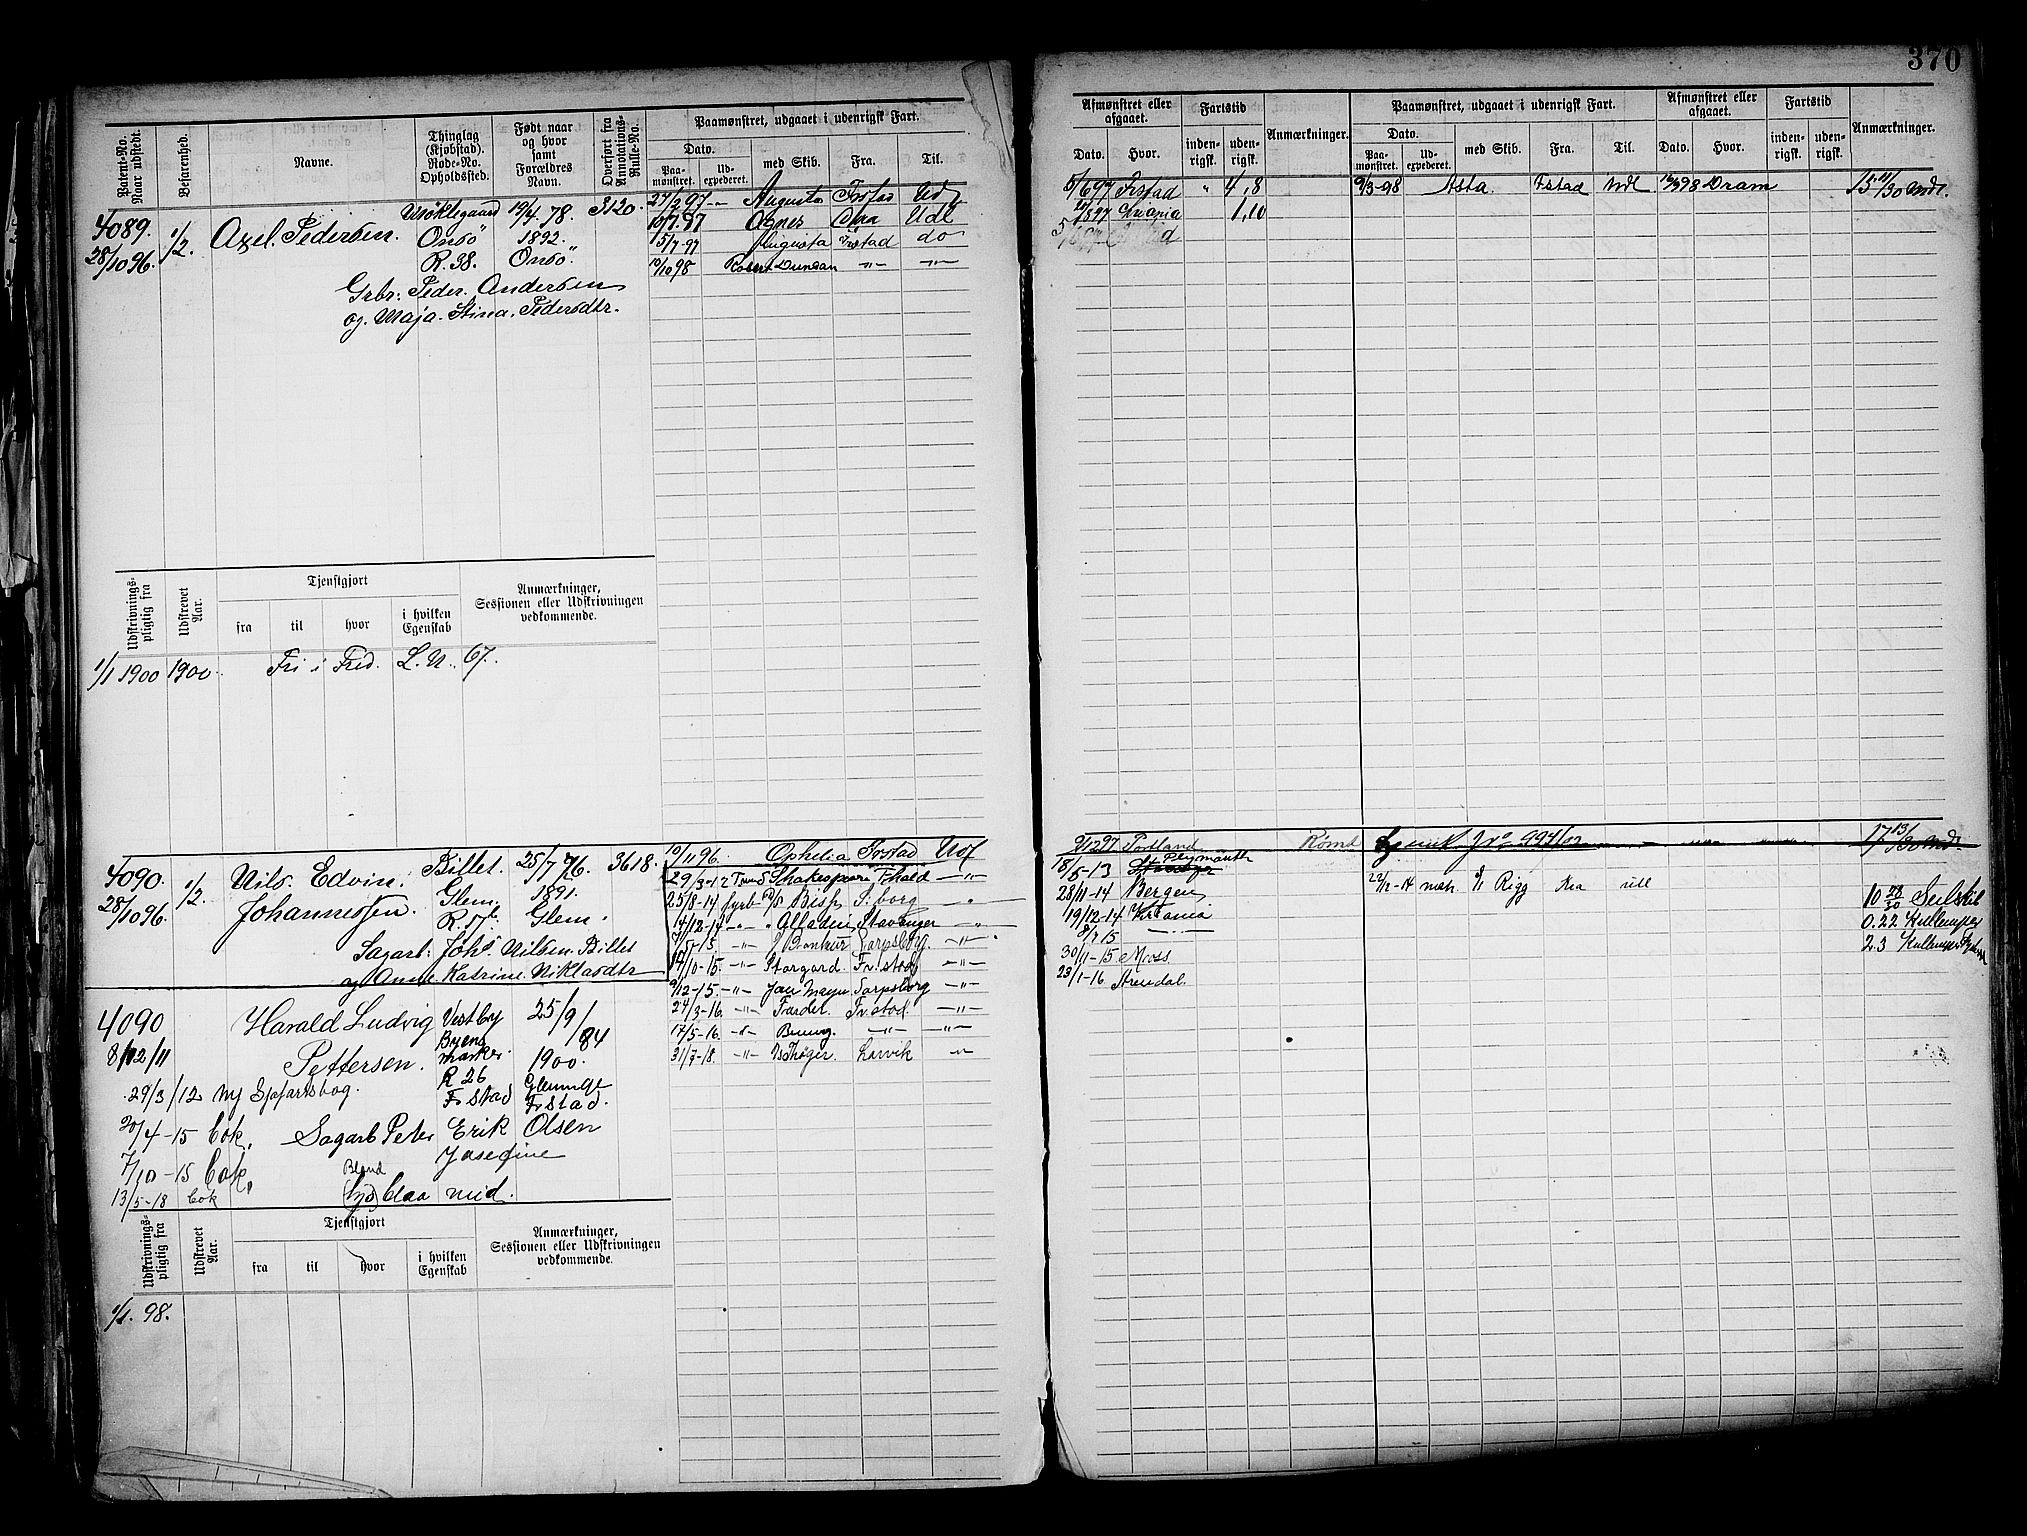 370
Patent-No. Naar udstedt.
Befarenhed.
Navne.
Thinglag (Kjøbstad). Rode-No. Opholdssted.
Født naar og hvor samt Forældres Navn.
Overført fra Annotations-Rulle-No.
Paamønstret, udgaaet i udenrigsk Fart.
Dato. Paamønstret. Udexpederet.
med Skib. Fra. Til.
4089. 28/10 96.
1/2.
Axel. Pedersen.
Onsö R. 38.
19/4. 78. 1892. Onsö.
3120.
Grbr: Peder. Andersen
og. Maja. Stina. Pedersdtr.
27/2 97 Augusta Frstad Ud
10/7. 97 Agnes Udl
15/7-97 Augusta Frstad do
10/10 98 Robert Duncan -"- -"-
Udskrivningspligtig fra
Udskrevet Aar.
Tjenstgjort
fra til hvor i hvilken Egenskab
Anmærkninger, Sessionen eller Udskrivningen vedkommende.
1/1 1900 1900. Fri i Fred. L. N. 67.
4090. 28/10 96.
1/2.
Nils. Edvin. Johannessen.
Billet. Glem. R. 17
25/7 76. 1891. Glem.
3618.
Sagarb: Johs Nilsen. Billet
og Anne Katrine. Niklasdtr
10/11 96. Ophelia Frstad Udl
4090
8/12/11
Harald Ludvig
Pettersen.
Vestby Byens marker. R 26 Frstad
25/9/84 1900. Glemmge Frstad.
29/3/12 ny Sjøfartsbog.
20/4-15 Cok. Sagarb Peter Erik Olsen
7/10-15 Cok. Josefine
13/5-18 Cok
Blond
blaa mid.
29/3-12 Shakespeare Fhald -"-
25/8-14 fyrb Bisp S.borg -"-
14/12-14 -"- Alladin Stavanger -"-
7/5-15. -"- Sarpsborg -"-
12/10-15. -"- Stargard. Fr.stad -"-
9/12-15. -"- Jan Mayn Sarpsborg -"-
24/3-16. -"- Fardel. Fr.stad. -"-
17/5-16. -"- -"- -"-
31/7-18. -"- Larvik -"-
Udskrivningspligtig fra
Udskrevet Aar.
Tjenstgjort
fra til hvor i hvilken Egenskab
Anmærkninger, Sessionen eller Udskrivningen vedkommende.
1/1. 98.
Afmønstret eller afgaaet.
Dato. Hvor.
Fartstid
indenrigsk. udenrigsk.
Anmærkninger.
Paamønstret, udgaaet i udenrigsk Fart.
Dato. Paamønstret. Udexpederet.
med Skib. Fra. Til.
Afmønstret eller afgaaet.
Dato. Hvor.
Fartstid
indenrigsk. udenrigsk.
Anmærkninger.
5/6 97 Frstad " 4,8
9/3-98 Asta. Fstad Udl Dram 15 11/30 mdr.
1,10
Portland Rømt
17 13/30 mdr.
18/5-13 Plymouth
28/11-14 Bergen
22/12-14 Rigg Kra
10 28/30 Seilskib
19/12-14 Kristiania
0.22 Kullemper
2.3 Kullemper
30/11-15 Moss
23/1-16 Arendal.